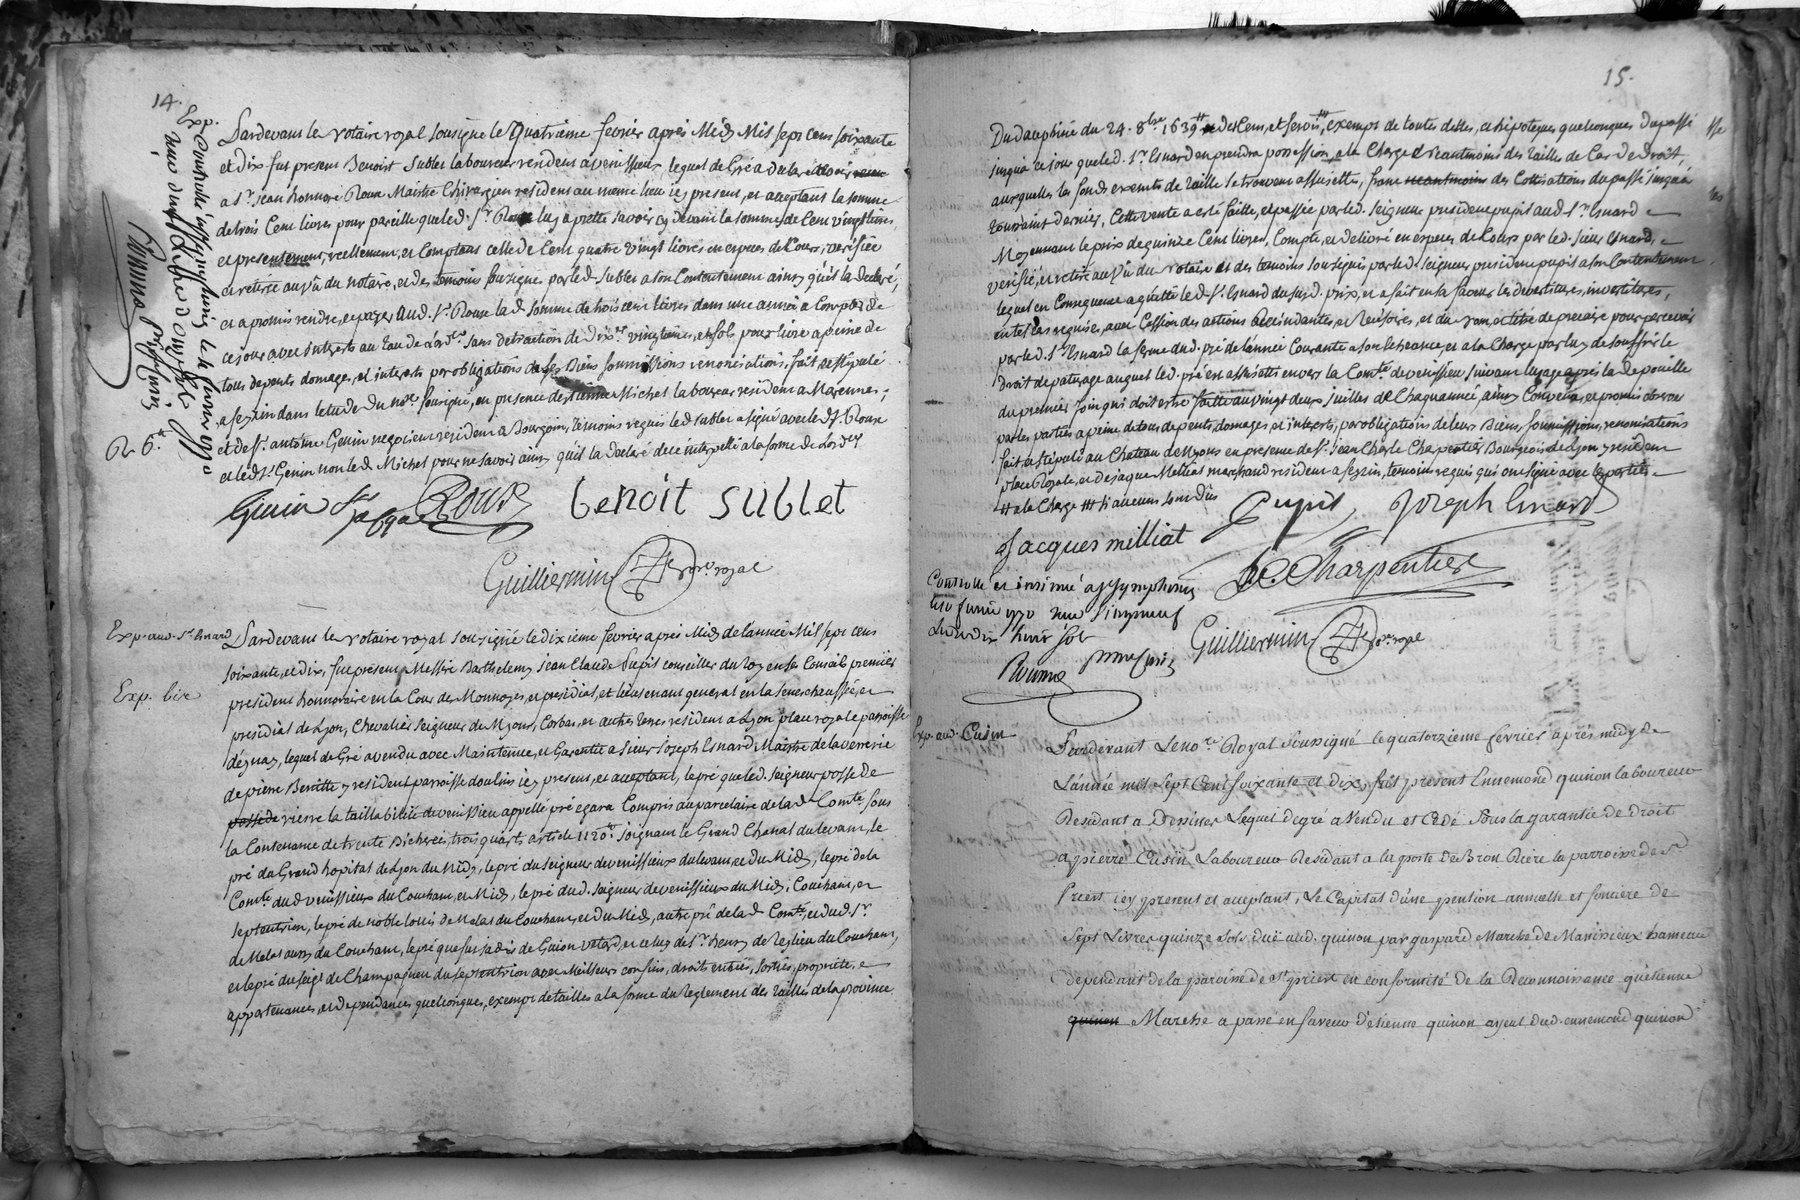 14.
Pardevant le notaire royal sousigné le quatrieme fevrier après Midy Mil sept cens soixante
et dix fut present Benoist Sublet laboureur resident a venissieux lequel de Gré a
a Sr. jean honnoré Roux Maistre Chirurgien resident au meme lieu icy present, et acceptant la somme
de trois Cent livres pour pareille que led. Sr. Roux luy a pretté savoir cy devant la somme de Cent vingt livres
et presentement, reellement, et Comptant celle de Cent quatre vingt livres en especes de Cours, verifiée
et retirée au vû du notaire, et des temoins sousignes par led. Sublet a son Contentement ainsy qu'il la declaré,
et a promis rendre, et payer aud. Sr. Roux lad. somme de trois cent livres dans une année a Compter de
ce jour avec interets au taux de l'ordce. sans detraction de dixe. vingtiemes, et sols pour livre a peine de
tous depents, domage, et interets par obligations de ses Biens soumissions renonciations, fait et stipulé
a feyzin dans letude du nore. sousigné, en presence destienne Michel laboureur resident a Marennes;
et de Sr. antoine Genin negociant resident a Bourgoin, temoins requis led. Sublet a signé avec led. Sr. Roux
et led. Sr. Genin non led. Michel pour ne savoir ainsy qu'il la declaré de ce interpellé a la forme de Lordce
R 6#
Genin Roux benoit sublet
Guilliermin nore. royal
Exp. aud. Sr. Esnard
Pardevant le notaire royal sousigné le dixieme fevrier après Midy de lannée Mil sept cens
soixante, et dix, fut present Messire Barthelemy jean Claude Pupil conseiller du roy en ses Conseils premier
president honnoraire en la Cour des Monnoyes, et presidial, et lieutenant general en la senechaussée, et
presidial de Lyon, Chevalier Seigneur de Myons, Corbas, et autres terres resident a Lyon place royale paroisse
d'eynay, lequel de Gré a vendu avec Maintenue, et Garentie a Sieur joseph Esnard Maistre de la verrerie
de pierre Benitte y resident paroisse doulins icy present, et acceptant, le pré que led. seigneur possede
possede rierre la taillabilité de venissieu appellé pré Compris au parcelaire de lad. Comté sous
la Contenance de trente Bicherées, trois quarts article 1120e. joignant le Grand Chenal du levant, le
pré du Grand hopital de Lyon du Midy, le pré du seigneur de venissieux du levant, et du Midy, le pré de la
Comté. dud. venissieux du Couchant, et Midy, le pré dud. seigneur de venissieux du Midy; Couchant, et
septentrion, le pré de noble louis de Melat du Couchant, et du Midy, autre pré de lad. Comté, et dud. Sr.
de Melat aussy du Couchant, le pré que fut jadis de Guion, et celuy de Sr. henry de du Couchant,
et le pré du seigr. de Champagneu du septentrion avec Meilleurs confins, droits entrées, sorties, proprieté, et
appartenances, et dependances quelconques, exempt de tailles a la forme du reglement des tailles de la province
15.
Du dauphiné du 24. 8bre 1639 # de Cens, et servis #, exempt de toutes dettes, et hipoteques quelconques du passé
jusqua ce jour que led. Sr. Esnard en prendra possession, a la Charge neantmoins des tailles de Cas de Droit,
auxquelles les fonds exempts de taille se trouvent assujettis, franc neantmoins des Cottisations du passé jusqu'a
toussaint dernier, Cette vente a esté faitte, et passée par led. seigneur president pupil aud. Sr. Esnard
Moyennant le prix de quinze Cent livres, Compté, et delivré en especes de Cours par led. Sieur Esnard,
verifié, et retiré au vû du notaire et des temoins sousignés par led. seigneur president pupil a son Contentement
lequel en Consequence a quitté led. Sr. Esnard du susd. prix, et a fait en sa faveur les devestitures, investitures,
en tel Cas requises, avec Cession des actions rescindantes, et rescisoires, et du nom, et titre de precaire pour percevoir
par led. Sr. Esnard la ferme dud. pré de lannée Courante a son echeance et a la Charge par luy de souffrir le
droit de paturage auquel led. pré est assujetti envers la Comté. de venissieu suivant lusage après la depouille
du premier foin qui doit estre faitte au vingt deux juillet de Chaque année, ainsy Convenu, et promis observer
par les parties a peine de tous depents, domages, et interets, par obligations de leurs Biens, soumissions, renonciations
fait, et stipulé au Chateau de Myons en presence de Sr. jean Charle Charpentier Bourgeois de Lyon y resident
place Royale, et de jaque Melliat marchand resident a feyzin, temoins requis qui ont signé avec les parties
# a la Charge ## si aucuns sont dûs
Pupil joseph Esnard
Jacques milliat
J. C. Charpentier
Controllé et insinué a St Symphorien
Guilliermin nore. royal
Exp. aud. Cusin
Pardevant Lenore. Royal soussigné le quatorzieme fevrier après midy de
L'année mil sept Cent soixante et dix, fut present Ennemond quinon laboureur
Residant a Dessines Lequel de gré a Vendu et Cédé sous la garantie de droit
a pierre Cusin Laboureur Residant a la porte De Bron Riere la parroisse de St
Priest icy present et acceptant, Le Capital d'une pention annuelle et fonciere de
sept Livres quinze sols, due aud. quinon par gaspard Marche de Manissieux hameau
dependant de la paroisse de St. priest en conformité de la Reconnoissance qu'étienne
quinon Marche a passé en faveur d'étienne quinon ayeul dud. ennemond quinon